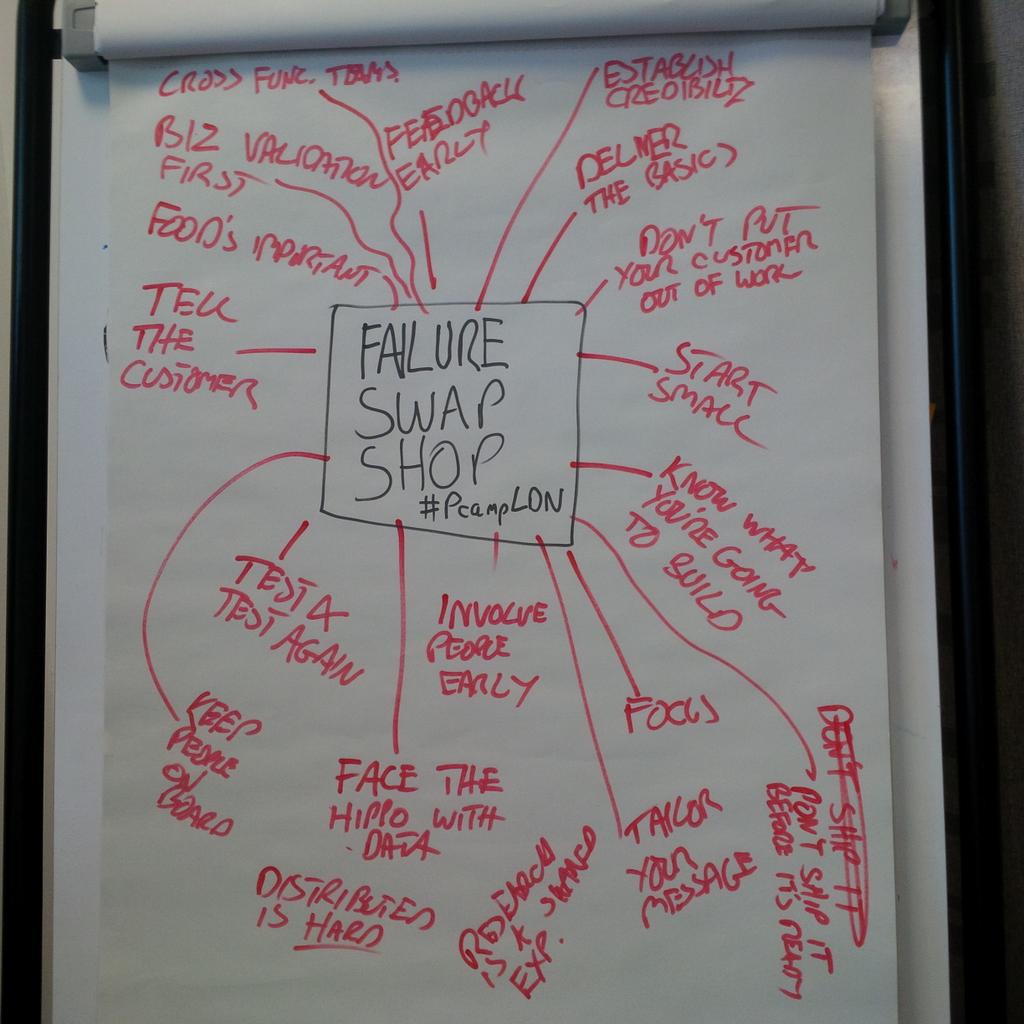 CROSS FUNC. TEAMS
FEEDBACK
EARLY
ESTABLISH
CREDIBILITY
BIZ VALIDATION
FIRST
DELIVER
THE BASICS
FOOD'S IMPORTANT
DON'T PUT
YOUR CUSTOMER
OUT OF WORK
TELL
THE
CUSTOMER
FAILURE
SWAP
SHOP
#PcampLON
START
SMALL
KNOW WHAT
YOU'RE GOING
TO BUILD
TEST &
TEST AGAIN
INVOLVE
PEOPLE
EARLY
FOCUS
KEEP
PEOPLE
ON
BOARD
FACE THE
HIPPO WITH
DATA
TAILOR
YOUR
MESSAGE
DON'T SHIP IT
DON'T SHIP IT
BEFORE IT'S READY
DISTRIBUTED
IS HARD
RESEARCH
IS A SHARED
EXP.